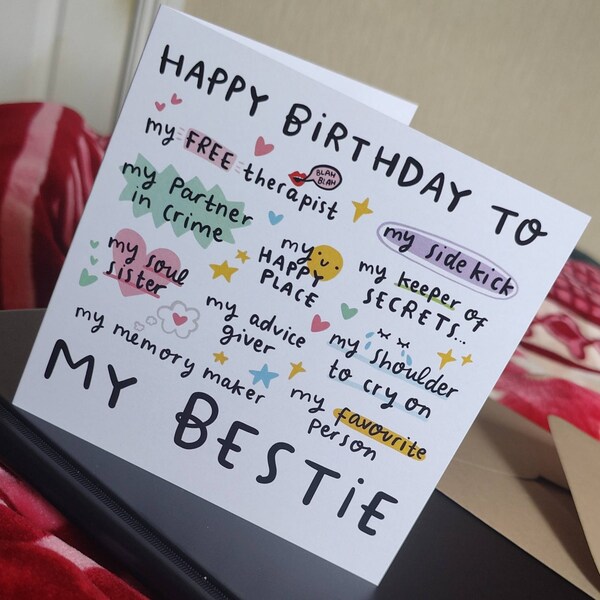 HAPPY BiRTHDAY TO
my FREE therapist
BLAH
BLAH
my Partner
in Crime
my side kick
my soul
sister
my
HAPPY
PLACE
my keeper of
SECRETS...
my advice
giver
my shoulder
to cry on
my memory maker
my favourite
Person
MY BESTiE